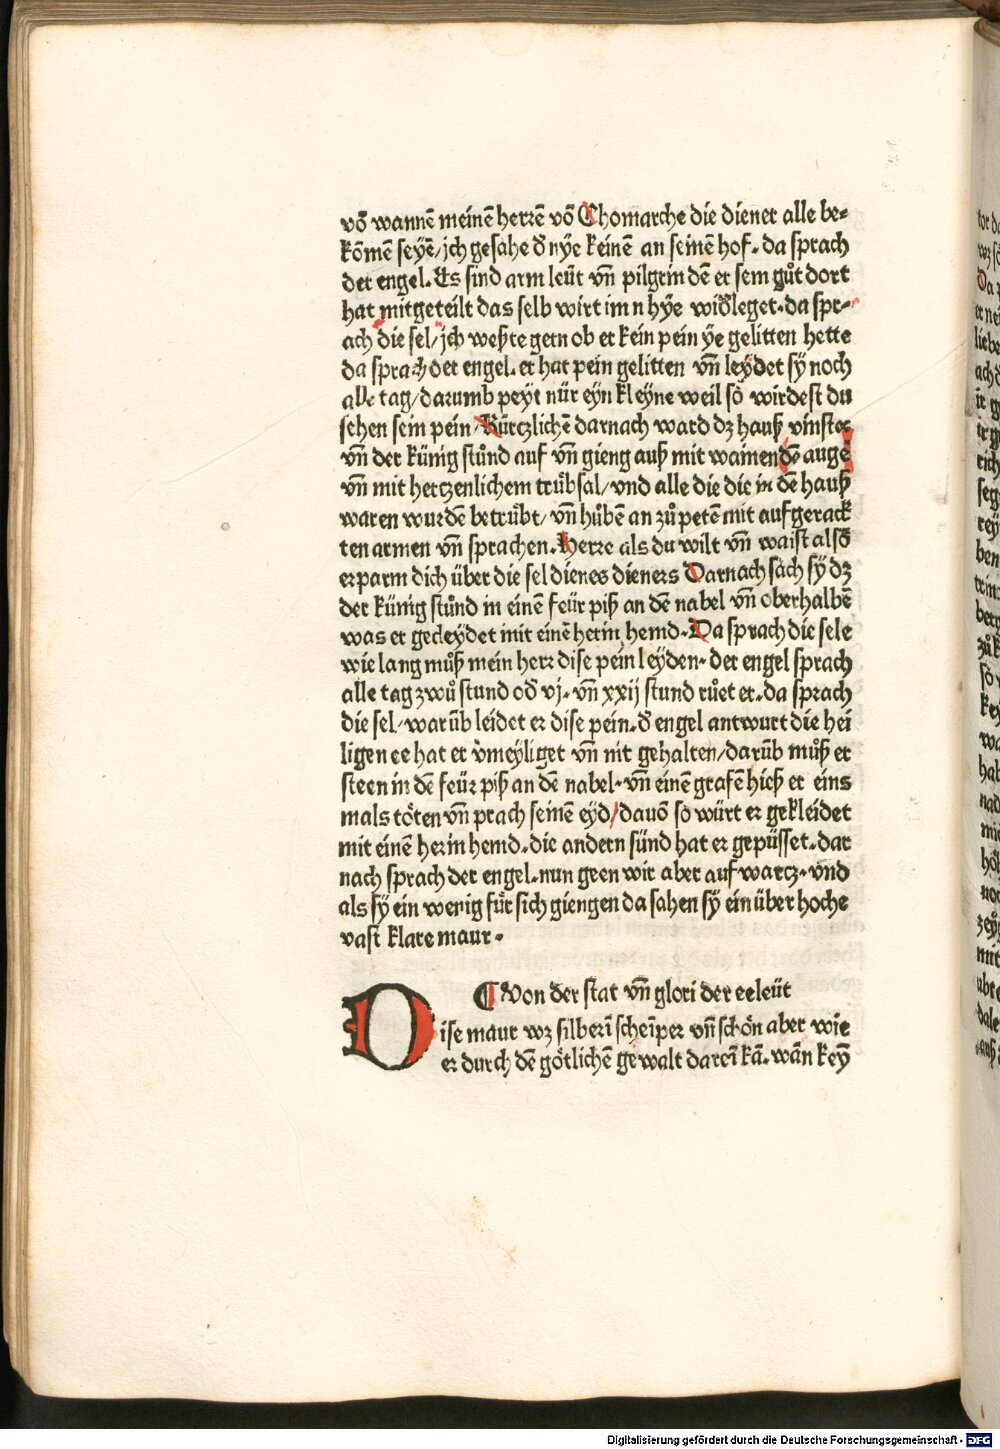 võ wannē meinē herrē võ Thomarche die diener alle be⸗
kõmē seyē/ jch gesahe d̄ nye keinē an seinē hof. da sprach
der engel. Es sind arm leüt vñ pilgrin dē er sein gůt dort
hat mitgeteilt das selb wirt im n hÿe wid̄leget. da spr⸗
ach die sel/ jch weßte gern ob er kein pein ÿe gelitten hette
da sprach der engel. er hat pein gelitten vñ leÿdet sÿ noch
alle tag/ darumb peyt nür eyn kleyne weil so wirdest du
sehen sein pein/ Kürczlichē darnach ward dz hauß vinster
vñ der künig stůnd auf vñ gieng auß mit wainendē augē
vñ mit hertzenlichem trůbsal/ vnd alle die die in dē hauß
waren wurdē betrůbt/ vñ hůbē an zů petē mit aufgerack
ten armen vñ sprachen. Herre als du wilt vñ waist alsõ
erparm dich über die sel dienes dieners Darnach sach sÿ dz
der künig stůnd in einē feür piß an dē nabel vñ oberhalbē
was er gecleÿdet mit einē herin hemd. Da sprach die sele
wie lang můß mein herr dise pein leÿden. der engel sprach
alle tag zwů stund od̄ vj. vñ xxij stund růet er. da sprach
die sel/ warūb leidet er dise pein. d̄ engel antwurt die hei
ligen ee hat er v̄meÿliget vñ nit gehalten/ darūb můß er
steen in dē feür piß an dē nabel. vñ einē grafē hieß er eins
mals tõten vñ prach seinē eÿd/ dauõ so würt er gekleidet
mit einē herin hemd. die andern sünd hat er gepüsset. dar
nach sprach der engel. nun geen wir aber auf wartz. vnd
als sÿ ein wenig für sich giengen da sahen sÿ ein über hoche
vast klare maur.
¶ Von der stat vñ glori der eeleüt
Dise maur wz silberī scheīper vñ schön aber wie
er durch dē götlichē gewalt dareī kā. wān keÿ
Digitalisierung gefördert durch die Deutsche Forschungsgemeinschaft - DFG